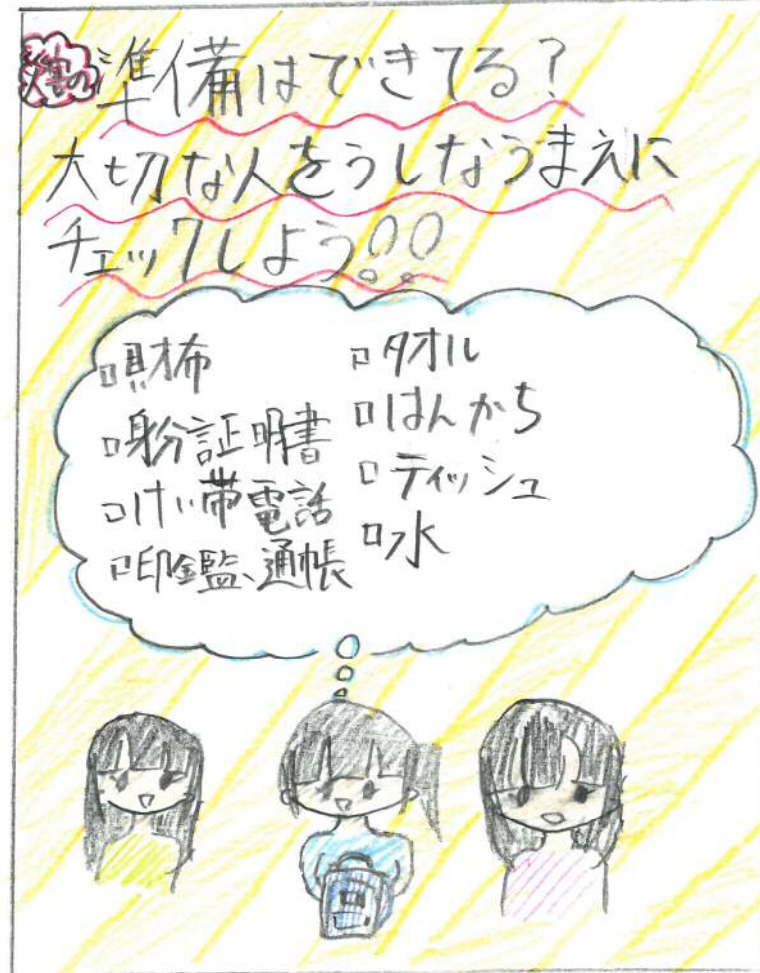 準備はできてる?
大切な人をうしなうまえに
チェックしよう!!
□財布
□身分証明書
□けい帯電話
□印鑑、通帳
□タオル
□はんかち
□ティッシュ
□水